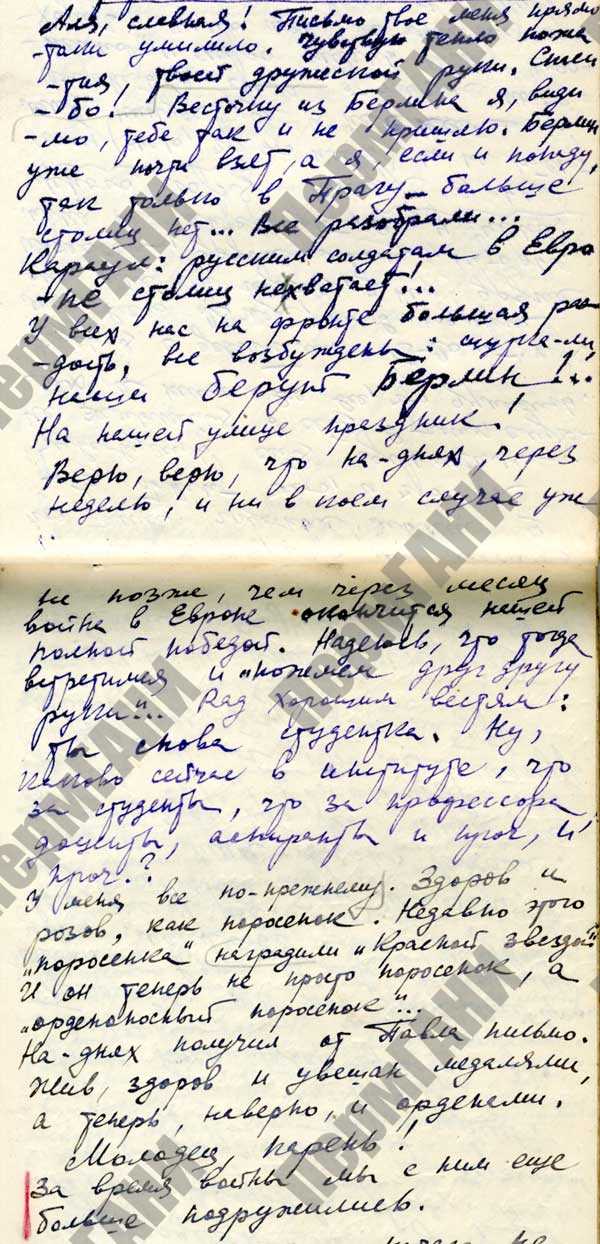 Аля, славная! Письмо твое меня прямо
-таки умилило. Чувствую тепло пожа
-тия, твоей дружеской руки. Спаси
-бо! Весточку из Берлина я, види
-мо, тебе так и не пришлю. Берлин
уже почти взят, а я, если и попаду,
так только в Прагу – больше
столиц нет... Все разобрали...
Караул: русским солдатам в Евро
-пе столиц нехватает!..
У всех нас на фронте большая ра
-дость, все возбуждены: шутка-ли,
наши берут Берлин!..
На нашей улице праздник!
Верю, верю, что на-днях, через
неделю, и ни в коем случае уже
не позже, чем через месяц
война в Европе окончится нашей
полной победой. Надеюсь, что тогда
встретимся и "пожмем друг другу
руки"... Рад хорошим вестям:
ты снова студентка. Ну,
каково сейчас в институте, что
за студенты, что за профессора,
доценты, аспиранты и проч, и
проч.?
У меня все по-прежнему. Здоров и
розов, как поросенок. Недавно этого
"поросенка" наградили "Красной звездой"
И он теперь не просто поросенок, а
"орденоносный поросенок"...
На-днях получил от Павла письмо.
Жив, здоров и увешан медалями,
а теперь, наверно, и орденами.
Молодец, парень!
За время войны мы с ним еще
больше подружились.
ПермГАНИ
ПермГАНИ
ПермГАНИ
ПермГАНИ
ПермГАНИ
ПермГАНИ